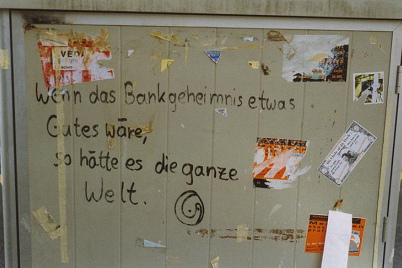 Wenn das Bankgeheimnis etwas
Gutes wäre,
so hätte es die ganze
Welt.